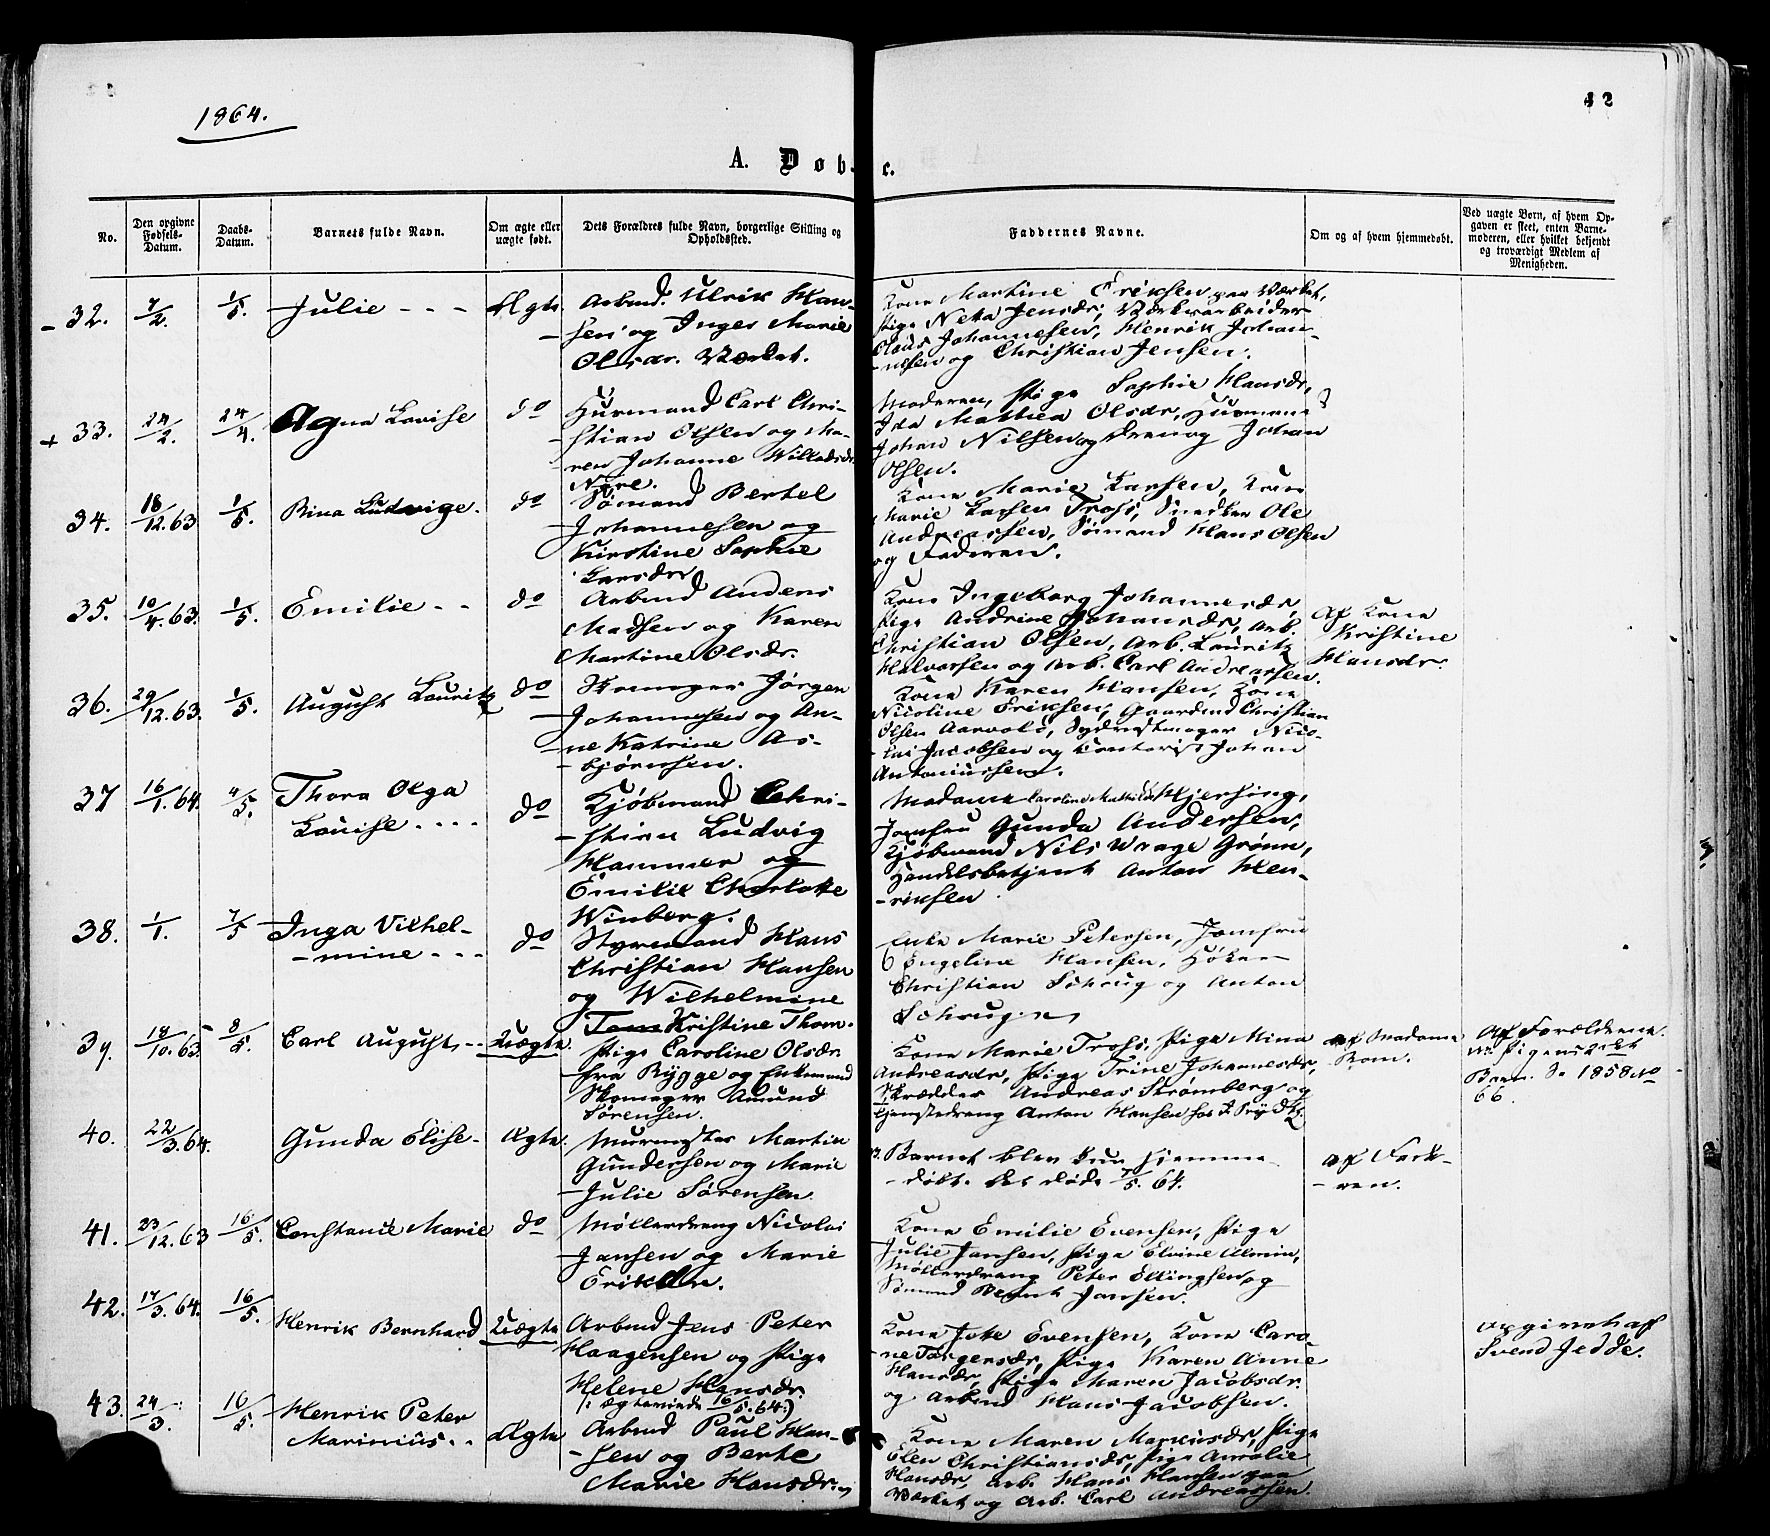 1864.
42
A. Døbte.
No.
Den opgivne Fødsels-Datum.
Daabs-Datum.
Barnets fulde Navn.
Om ægte eller uægte født.
Dets Forældres fulde Navn, borgerlige Stilling og Opholdssted.
Faddernes Navne.
Om og af hvem hjemmedøbt.
Ved uægte Børn, af hvem Opgaven er skeet, enten Barnemoderen, eller hvilket bekjendt og troværdigt Medlem af Menigheden.
- 32. 7/2. 1/5. Julie - - - Ægte.
Arbmd. Ulrik Han-
sen og Inger Marie
Olsdr. Værket.
Kone Martine Eriksen paa Værket,
Pige Neta Jensdr, Værksarbeider
Olaus Johannesen, Henrik Johan-
nesen og Christian Jensen.
+ 33. 24/2. 24/4. Agna Lovise do
Huusmand Carl Chri-
stian Olsen og Ma-
ren Johanne Willadsdr.
Nøre.
Moderen, Pige Sophie Hansdr,
Ida Mathea Olsdr, Husmænd
Johan Nilsen og Dreng Johan
Olsen.
34. 18/12.63 1/5. Bina Ludvige. do
Sømand Bertel
Johannesen og
Kirstine Sophie
Larsdr
Kone Marie Larsen, Kone
Marie Larsen Tross, Snedker Ole
Andreassen, Sømand Hans Olsen
og Faderen.
35. 10/4.63. 1/5. Emilie - - do
Arbmd Anders
Madsen og Karen
Martine Olsdr.
Kone Ingeborg Johannesdr,
Pige Andrine Johansdr, Arb.
Christian Olsen, Arb. Lauritz
Halvorsen og Arb. Carl Andreassen.
Af Kone
Kristine
Hansdr.
36. 29/12.63. 1/5. August Lauritz do
Skomager Jørgen
Johannesen og An-
ne Katrine As-
bjørnsen.
Kone Karen Hansen, Kone
Nicoline Eriksen, Gaardmd Christian
Olsen Aarvold, Nico-
lai Jacobsen og Contorist Johan
Antoniussen.
37 16/1.64. 4/5. Thora Olga
Lovise. - - - - do
Kjøbmand Chri-
stian Ludvig
Hammer og
Emilie Charlotte
Winberg.
Madame Caroline Mathilde Hjersing,
Jomfru Gunda Andersen,
Kjøbmand Nils Waage Grønn,
Handelsbetjent Anton Hen-
riksen.
38. 1/1. 7/5 Inga Vilhel-
mine - - - do
Styrmand Hans
Christian Hansen
og Wilhelmine
Kristine Thom.
Enke Marie Petersen, Jomfru
Engeline Hansen, Høker
Christian Schrug og Anton
Schrugen
39. 18/10.63. 8/5. Carl August - - Uægte.
Pige Caroline Olsdr
fra Rygge og Enkemand
Skomager Amund
Sørensen.
Kone Marie Tross, Pige Mina
Andreasdr, Pige Trine Johannesdr,
Skrædder Andreas Strømberg og
tjenestedreng Anton Hansen hos
af Madame
Rom.
Af Forældrene.
Pigens 2det
Barn. Se 1858 No
66.
40. 22/3.64. Gunda Elise - Ægte.
Murmester Martin
Gundersen og Marie
Julie Sørensen.
Barnet blev kun hjemme-
døbt. det døde 7/5.64.
af Fade-
ren.
41. 23/12.63 16/5. Constance Marie do
Møllerdreng Nicolai
Jansen og Marie
Kone Emilie Evensen, Pige
Julie Jansen, Pige Elvine Almin,
Møllerdreng Peter Ellingsen og
Sømand Bernt Jansen.
42. 17/3.64. 16/5. Henrik Bernhard Uægte
Arbmd Jens Peter
Haagensen og Pige
Helene Hansdr.
(: Ægteviede 16/5.64.)
Kone Jote Evensen, Kone Caro-
ne Torgersdr, Pige Karen Anne
Hansdr, Pige Maren Jacobsdr.
og Arbmd Hans Jacobsen.
opgivet af
Svend Jedde.
43. 24/3. 16/5. Henrik Peter
Marinius. - - Ægte
Arbmd Paul Han-
sen og Berte
Marie Hansdr.
Kone Maren Markusdr, Pige
Elen Christiansdr, Pige Amalie
Hansdr, Arb. Hans Hansen paa
Værket og Arb. Carl Andreassen.